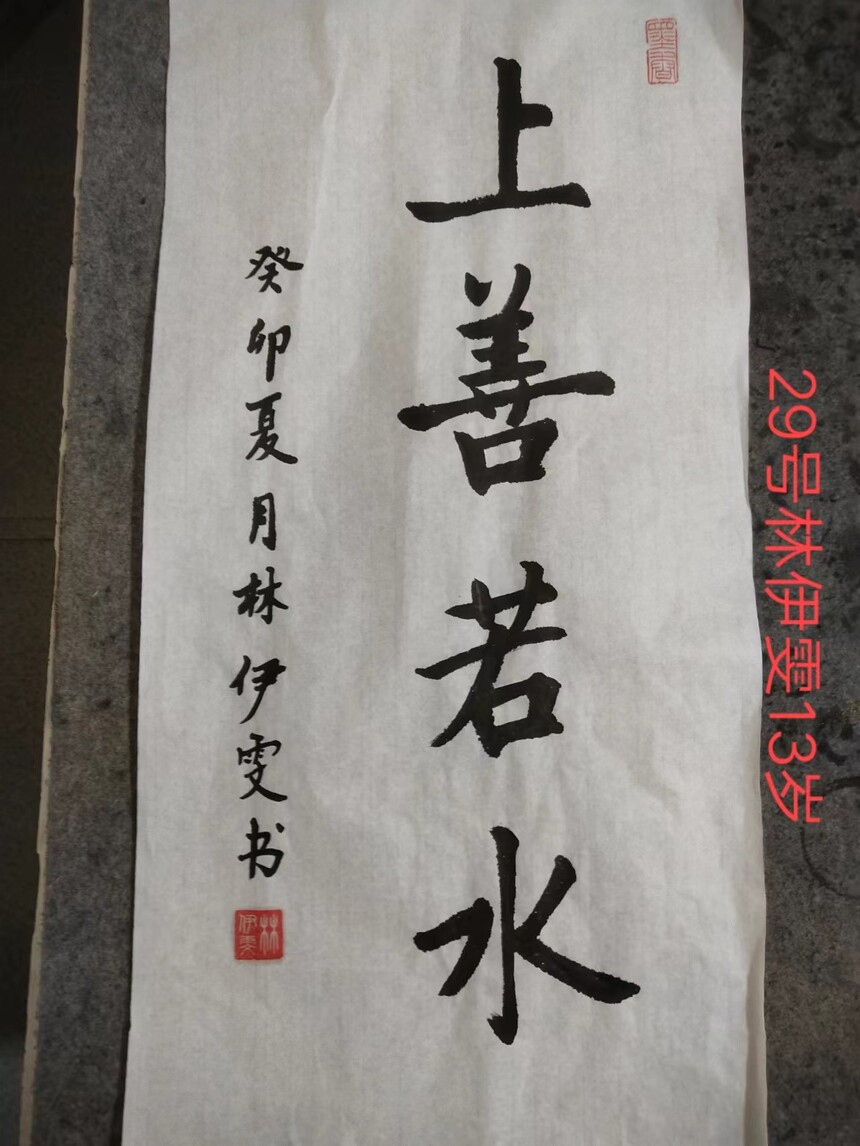 上善若水
癸卯夏月林伊雯书
林伊雯
29号林伊雯13岁